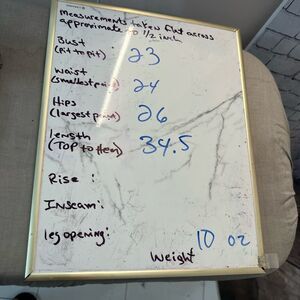 measurements taken flat across
approximate to 1/2 inch
Bust
(pit to pit) 23
waist
(smallest point) 24
Hips
(largest point) 26
length
(TOP to Hem) 34.5
Rise :
Inseam:
leg opening:
10 oz
Weight